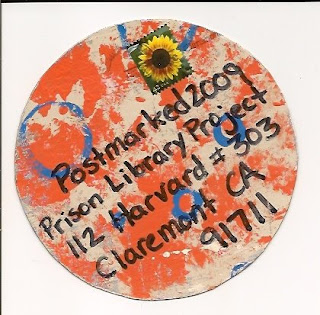 Postmarked2009
Prison Library Project
112 Harvard # 303
Claremont CA
91711